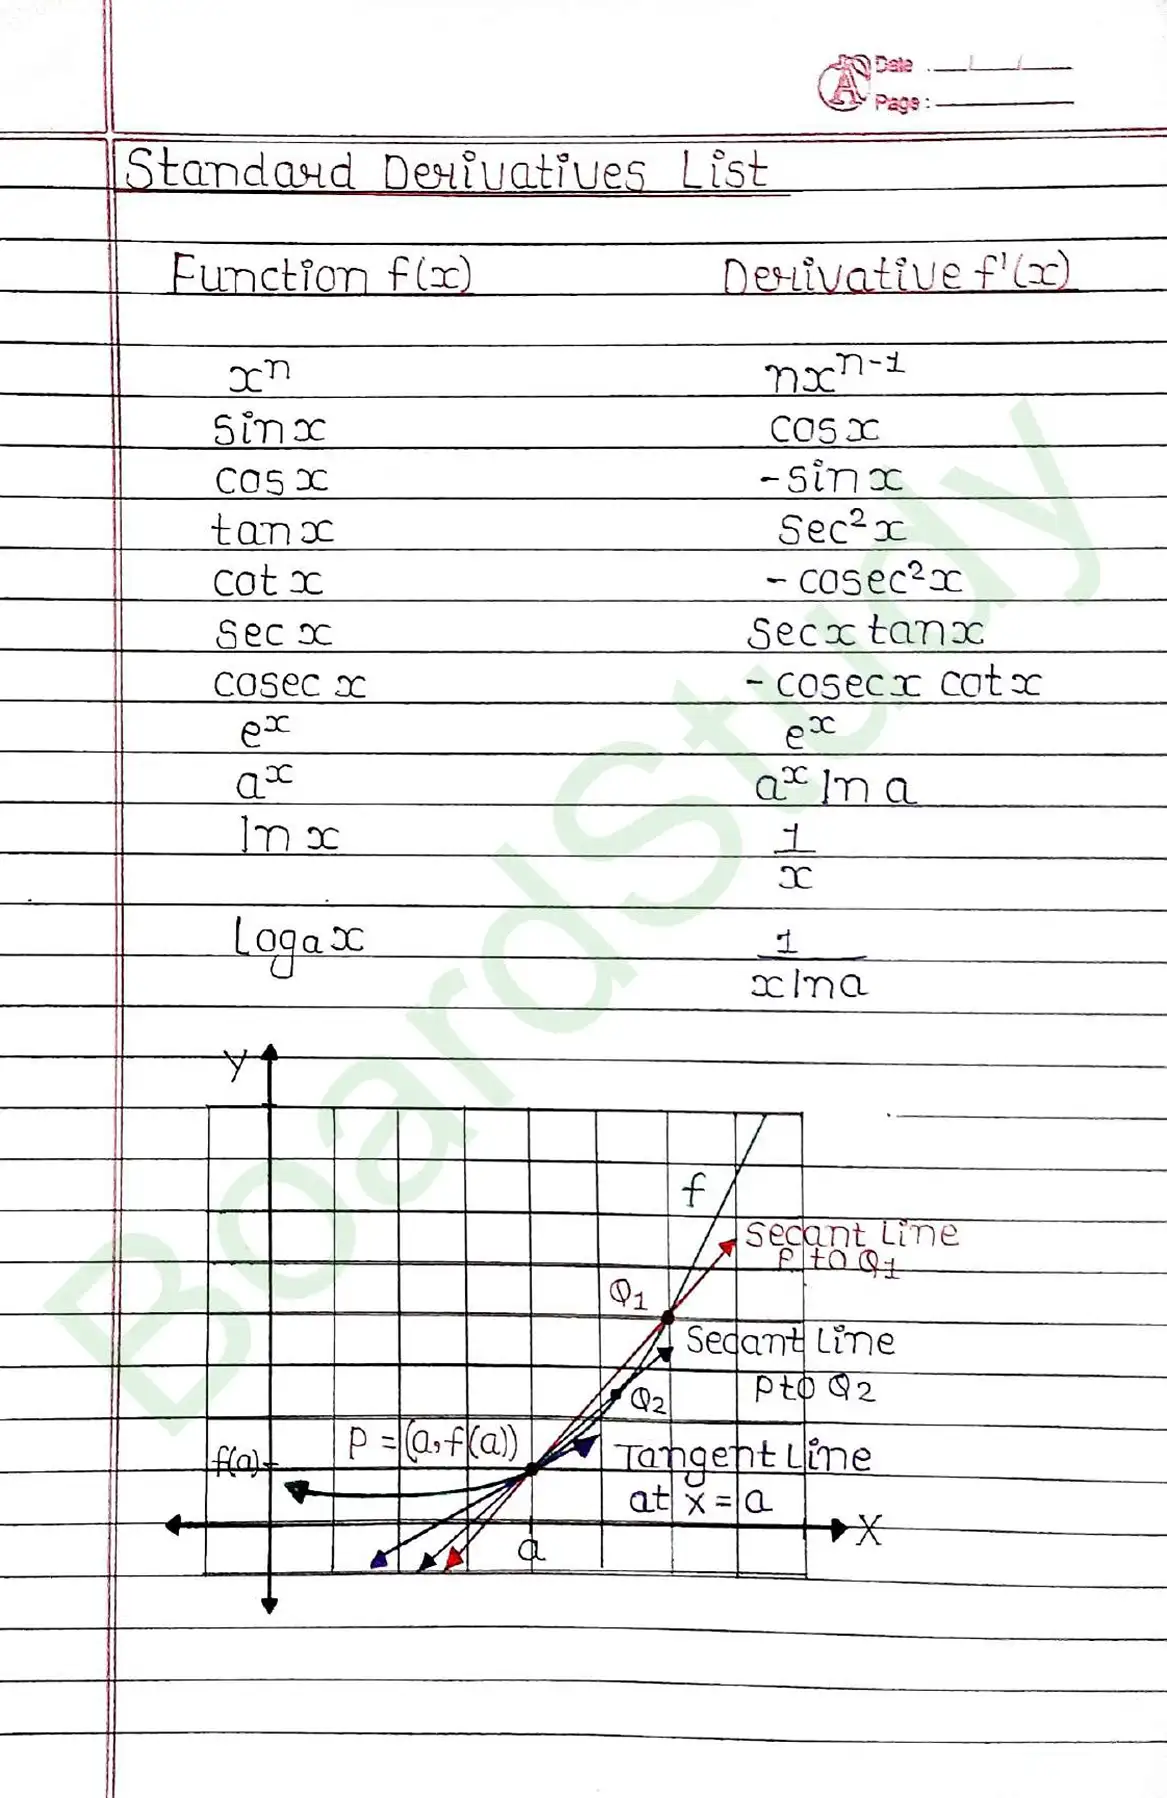 Date
Page :
Standard Derivatives List
Function f(x) Derivative f'(x)
xⁿ nxⁿ⁻¹
sin x cos x
cos x -sin x
tan x sec² x
cot x - cosec² x
sec x sec x tan x
cosec x - cosec x cot x
eˣ eˣ
aˣ aˣ ln a
ln x 1/x
Logₐ x 1/(x ln a)
Y
f
Secant Line
P to Q1
Q1
Secant Line
P to Q2
Q2
P = (a, f(a))
f(a)
Tangent Line
at x = a
X
a
BoardStudy